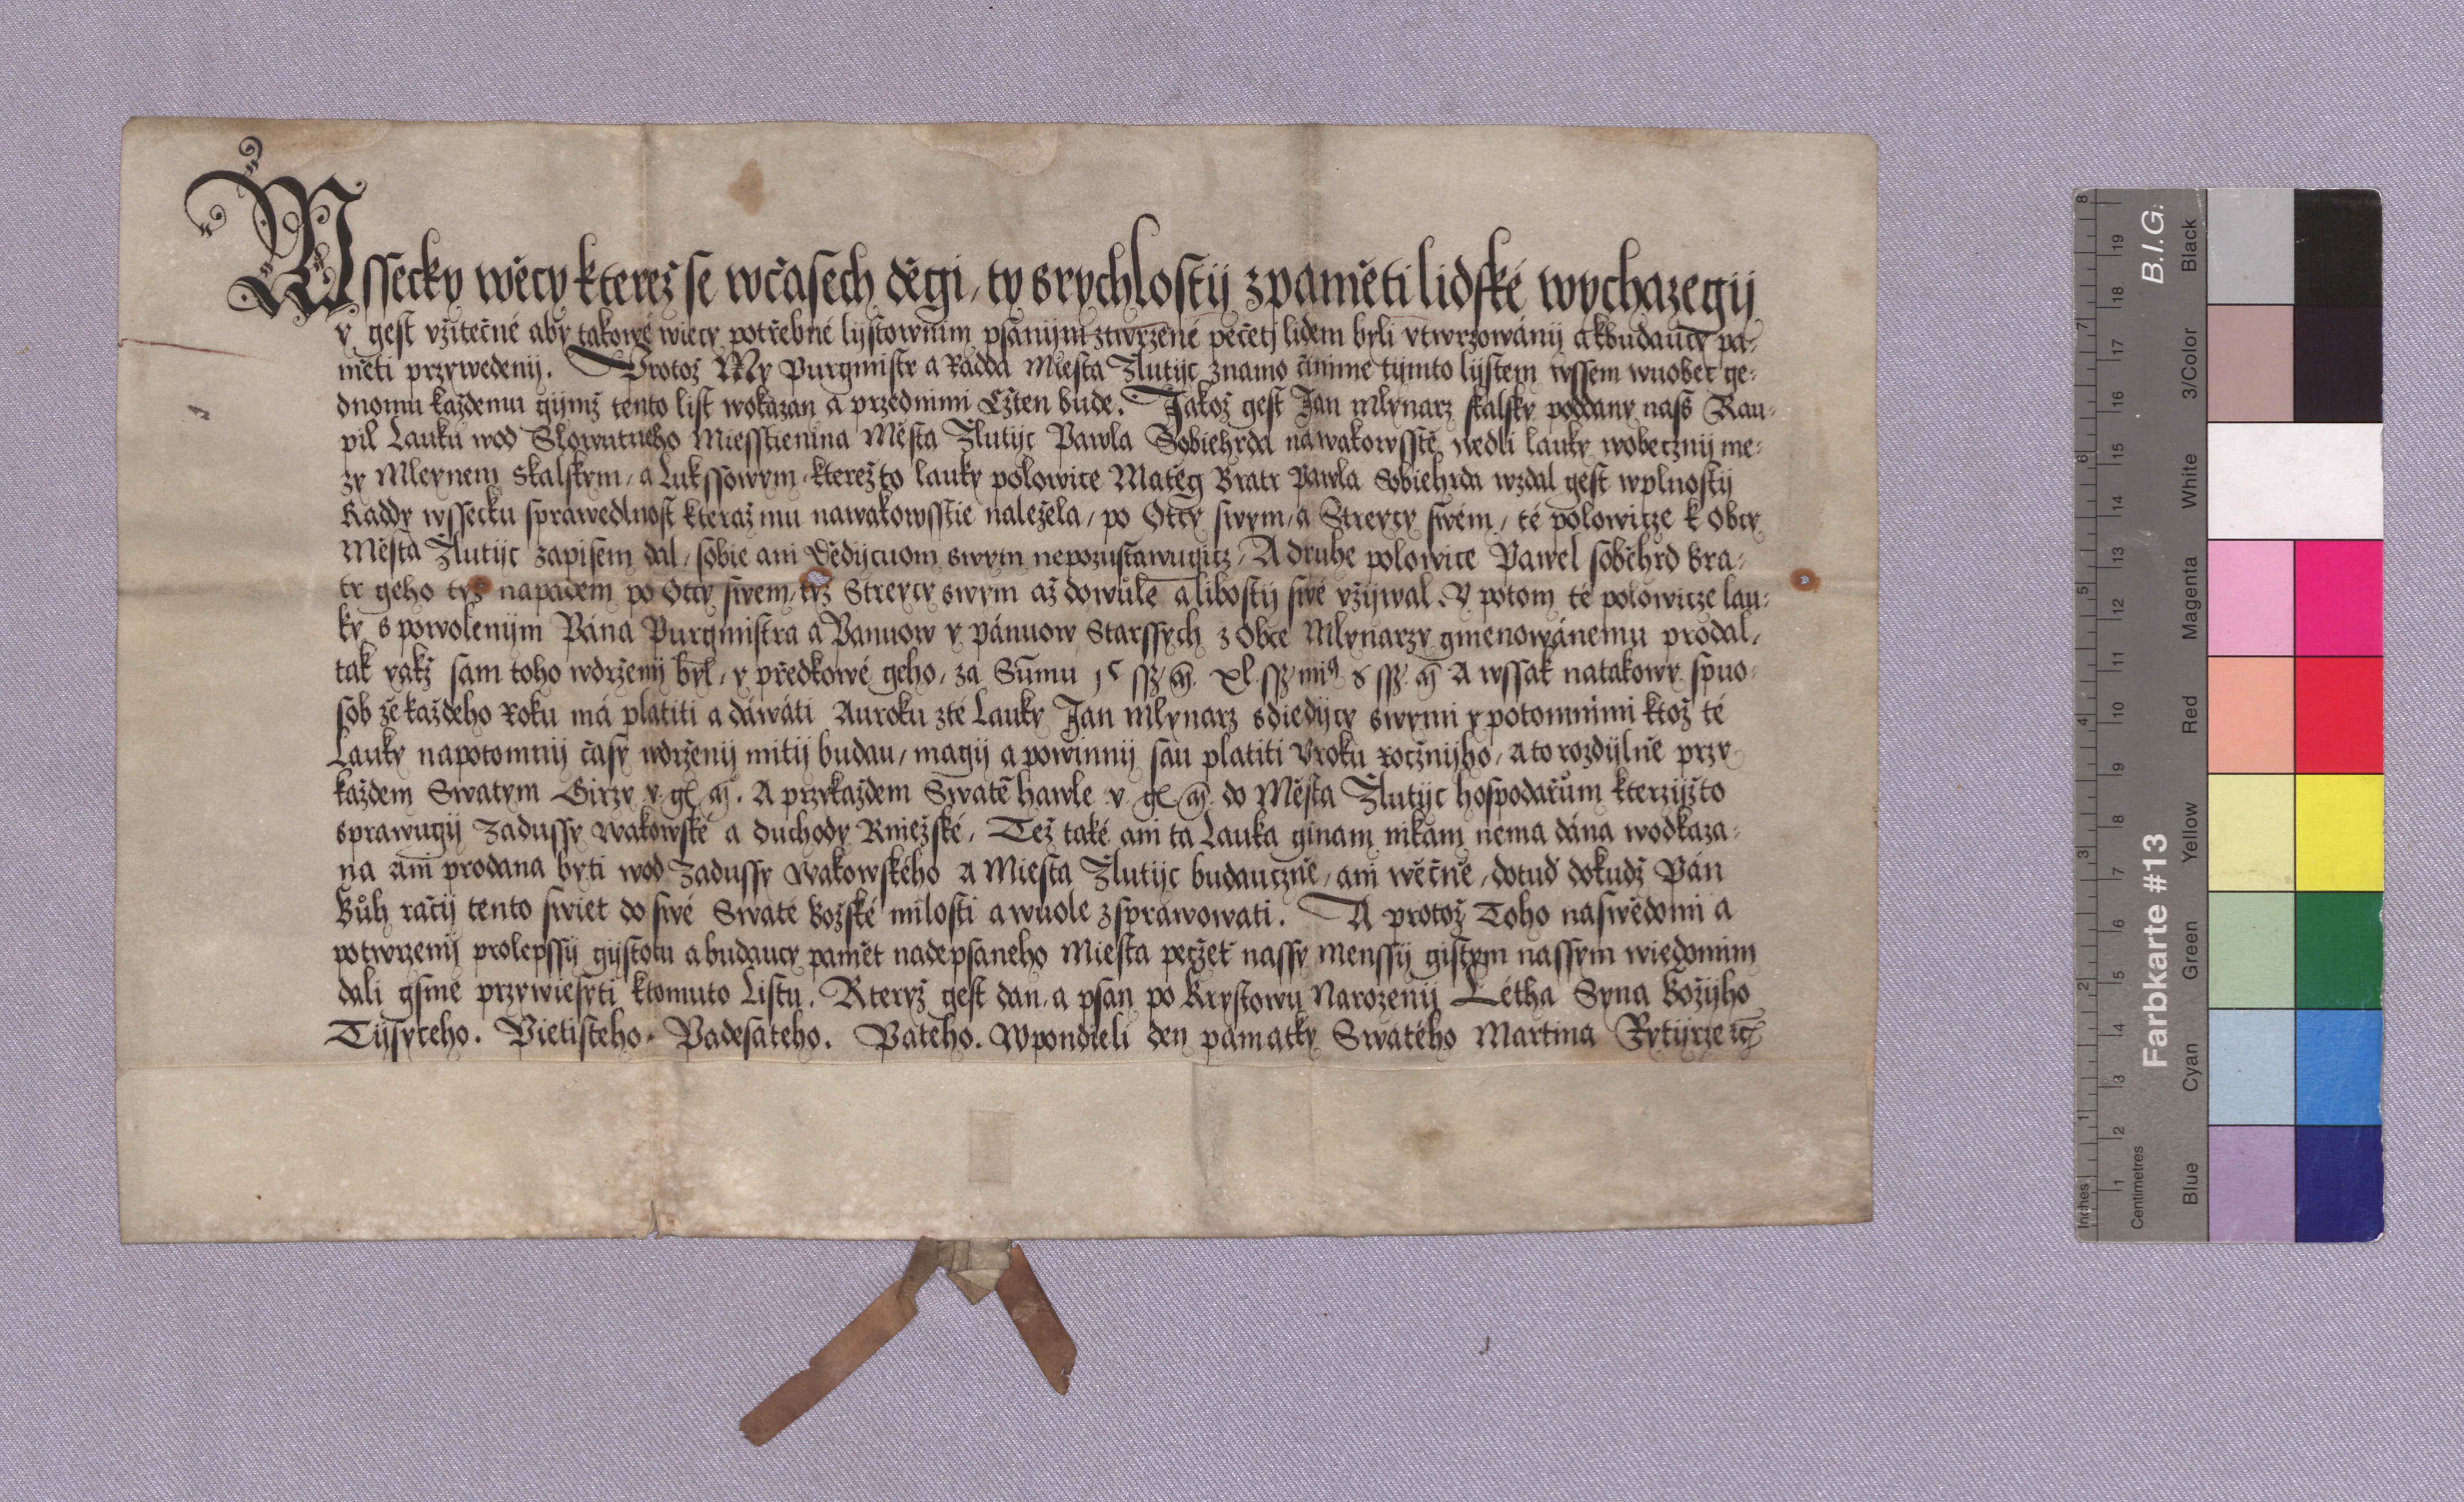 Wssecky wěcy kterež se wčasech děgi, ty srychlostij zpaměti lidské wychazegij
y gest vžitečné aby takowé wiecy potřebné lijstownim psanijm ztwrzené pečetj lidem byli vtwrzowánij akbudaucy pa-
měti przywedenij. Protož My Purgmistr a Radda Miesta Žlutijc známo činime tijmto lijstem wssem wuobec ge-
dnomu každemu gijmž tento list wokázan a przednimi Cžten bude. Jakož gest Jan mlynarz skalsky poddany nass Kau-
pil Lauku wod Slowutneho Miesstienina Města Žlutijc Pawla Sobiehrda nawakowsstě wedli lauky wobecznij me-
zy Mleynem Skalskym, a Lukssowym, kterežto lauky polowice Matěg Bratr Pawla Sobiehrda wzdal gest wplnostij
Raddy wssecku sprawedlnost kteraž mu nawakowsstie naležela, po Otcy swym, a Streycy swém, té polowicze k Obcy
Města Žlutijc zapisem dal, sobie ani Dědijcuom swym nepozustawugicz, A druhe polowice Pawel soběhrd bra-
tr geho tyž napadem po Otcy swem, tyž Streycy swym až dowůle a libostij swé vžijwal. Y potom té polowicze lau-
ky s powolenijm Pána Purgmistra a Panuow y pánuow Starssych z Obce Mlynarzy gmenowánemu prodal,
tak yakž sam toho wdrženij byl, y předkowé geho, za Sumu A wssak natakowy spuo-
sob že každeho Roku má platiti a dáwáti Auroku zté Lauky Jan mlynarz sdiedijcy swymi y potomnimi ktož té
Lauky napotomnij časy wdrženij mitij budau, magij a powinnij sau platiti Vroku rocznijho, a to rozdijlně przy
každem Swatym Girzy v gl m. A przykaždem Swatě hawle v gl m do Města Žlutijc hospodařům kterzijžto
sprawugij Zadussy wakowské a duchody Kniežské, Tež také ani ta Lauka ginam nikam nema dána wodkaza-
na ani prodana byti wod Zadussy wakowského a Miesta Žlutijc budauczně, ani wěčně, dotud dokudž Pán
Bůh račij tento swiet do swé Swaté božské milosti a wuole zsprawowati. A protož Toho naswědomi a
potwrzenij prolepssij gijstotu a budaucy pamět nadepsaneho Miesta peczeť nassy menssij gistym nassym wiedomim
dali gsme przywiesyti ktomuto Listu. Kteryž gest dan, a psan po Krystowu Narozenij Létha Syna božijho
Tijsyceho. Pietisteho. Padesateho. Pateho. Wpondieli den památky Swatého Martina Rytijrze ꝛc
Farbkarte #13
B.I.G.
Inches
Centimetres
Blue
Cyan
Green
Yellow
Red
Magenta
White
3/Color
Black